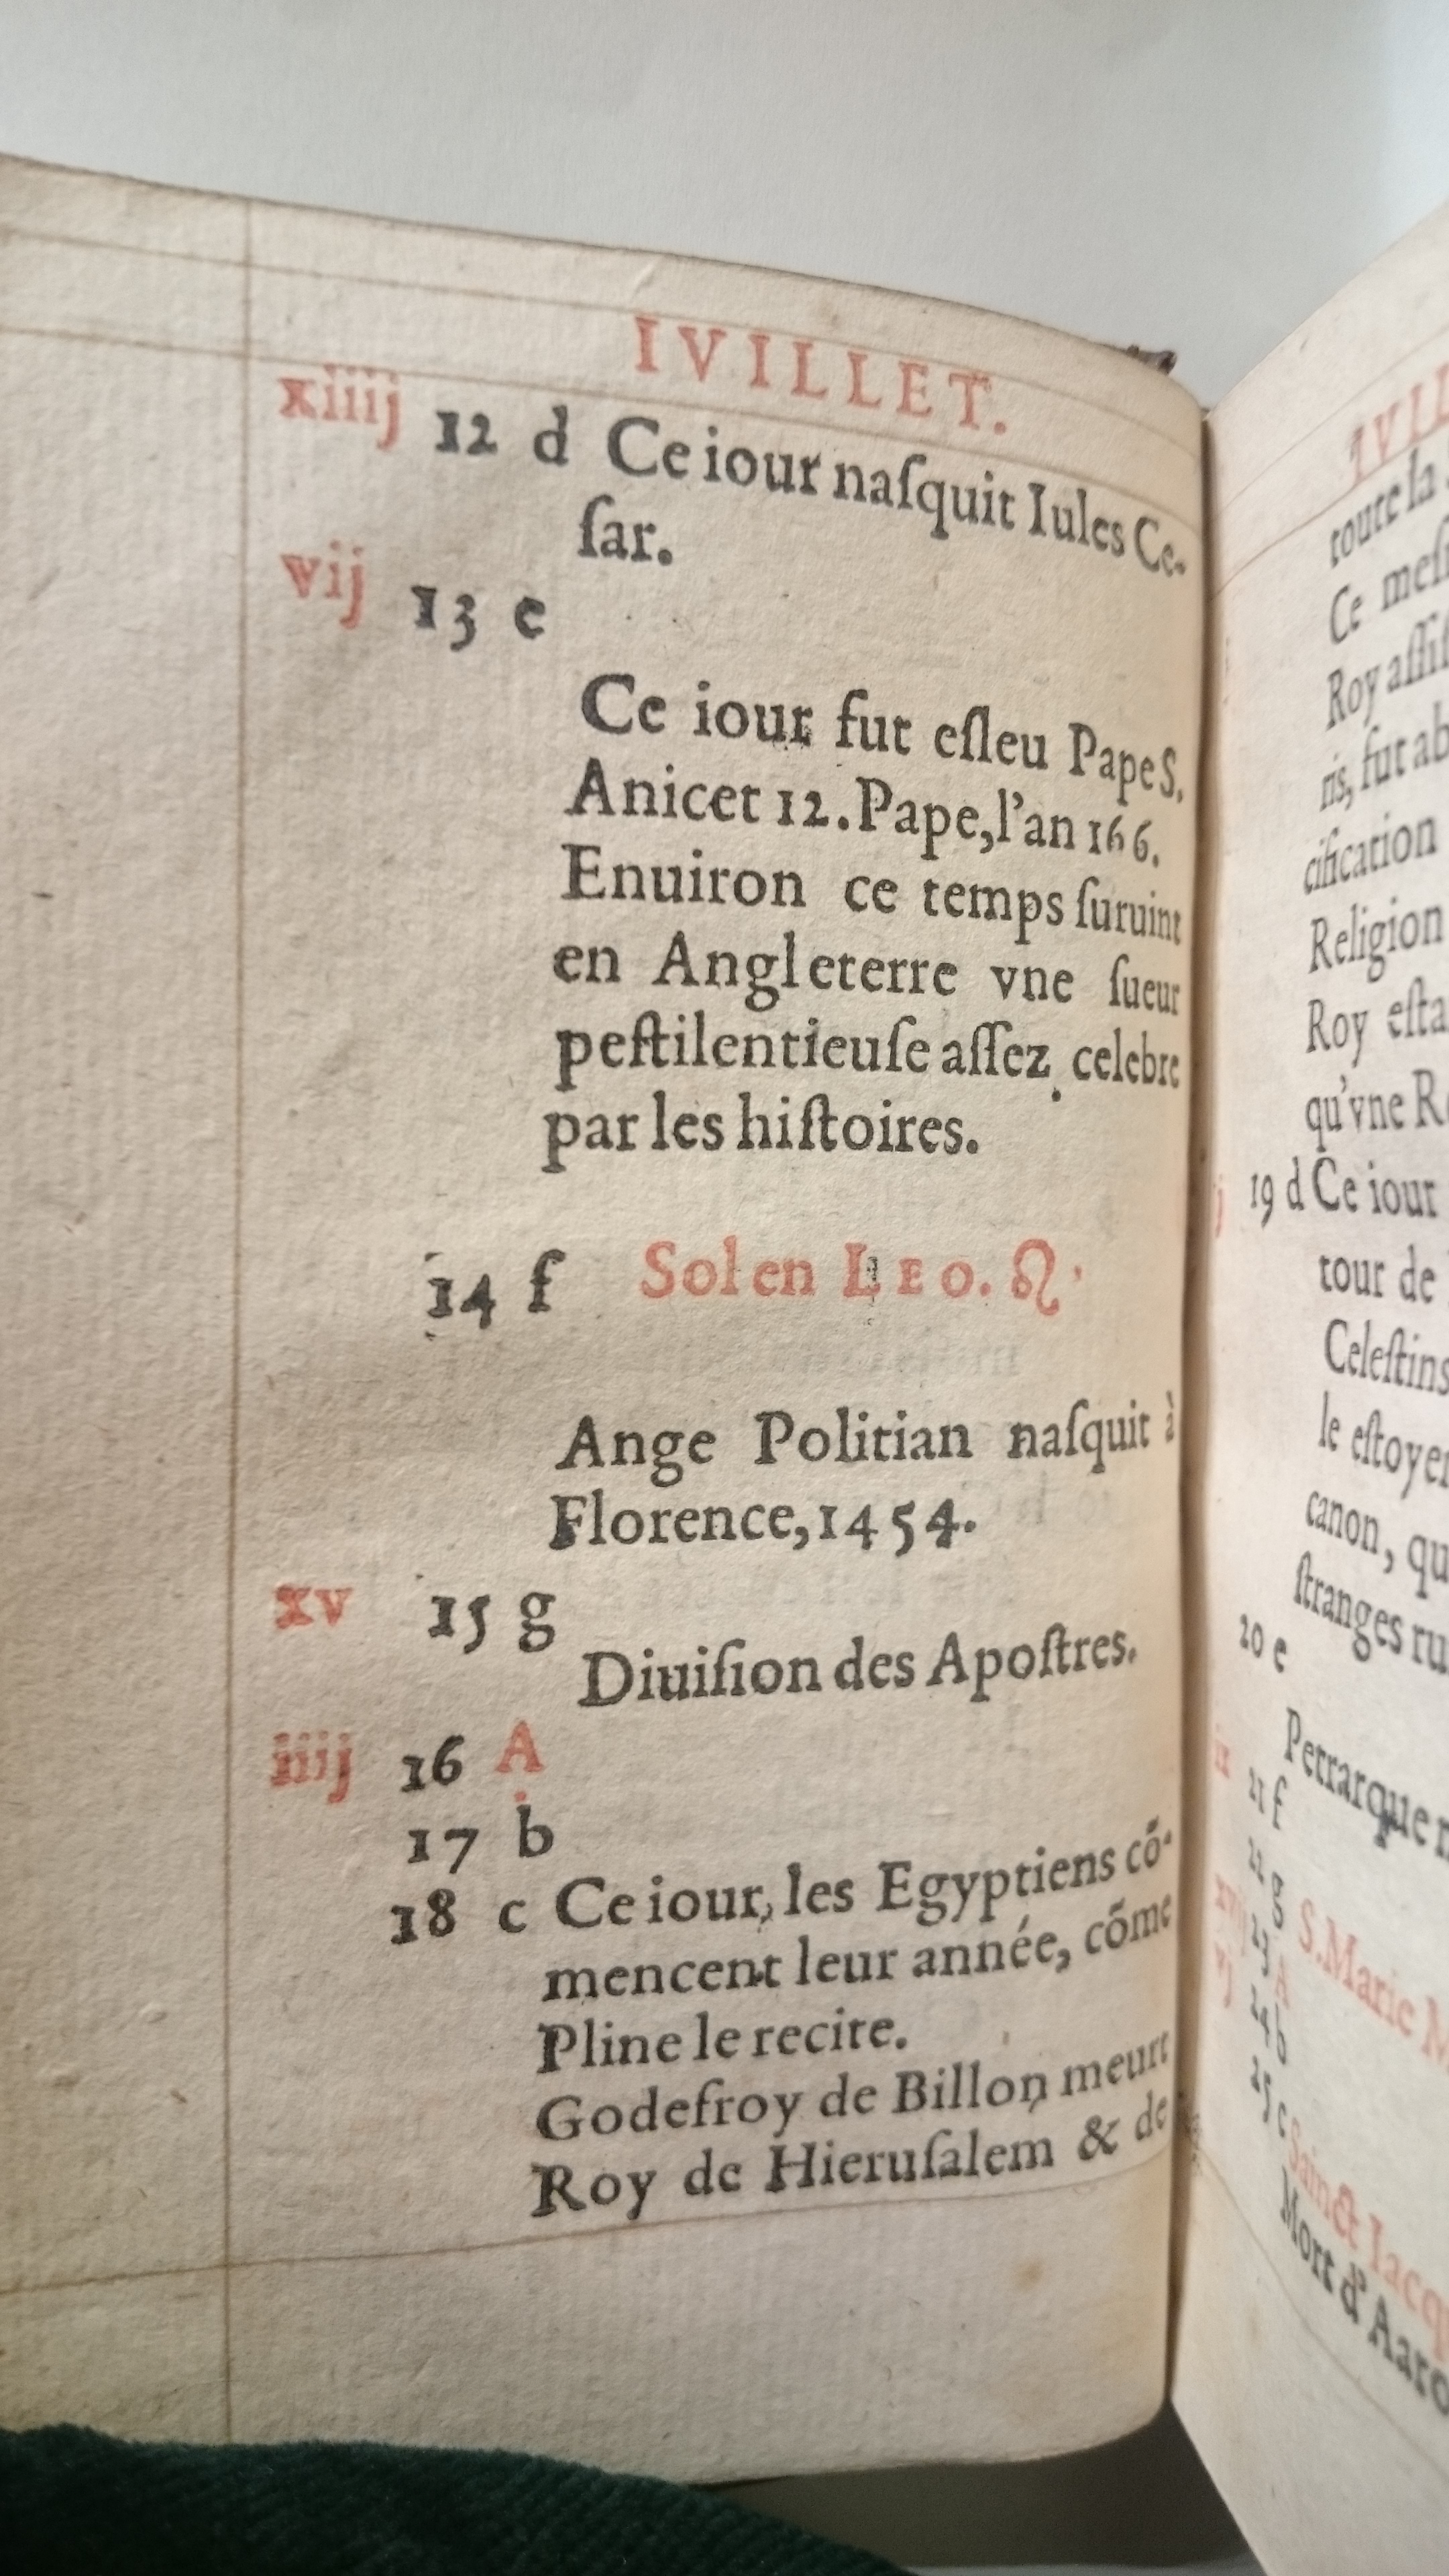 IVILLET.
xiiij 12 d Ce iour naſquit Iules Ce-
ſar.
vij 13 e
Ce iour fut eſleu Pape S.
Anicet 12. Pape, l'an 166.
Enuiron ce temps ſuruint
en Angleterre vne ſueur
peſtilentieuſe aſſez celebre
par les hiſtoires.
14 f Sol en LEO. ♌
Ange Politian naſquit à
Florence, 1454.
xv 15 g
Diuiſion des Apoſtres.
iiij 16 A
17 b
18 c Ce iour, les Egyptiens cõ-
mencent leur année, cõme
Pline le recite.
Godefroy de Billon meurt
Roy de Hieruſalem & de
toute la
Ce
Roy
ris, fut
cification
Religion
Roy
qu'vne
19 d Ce iour
tour de
Celeſtins
le
canon,
ſtranges
20 e
Petrarque
21 f
22 g S. Marie
23 A
24 b
25 c Sainct
Mort d'